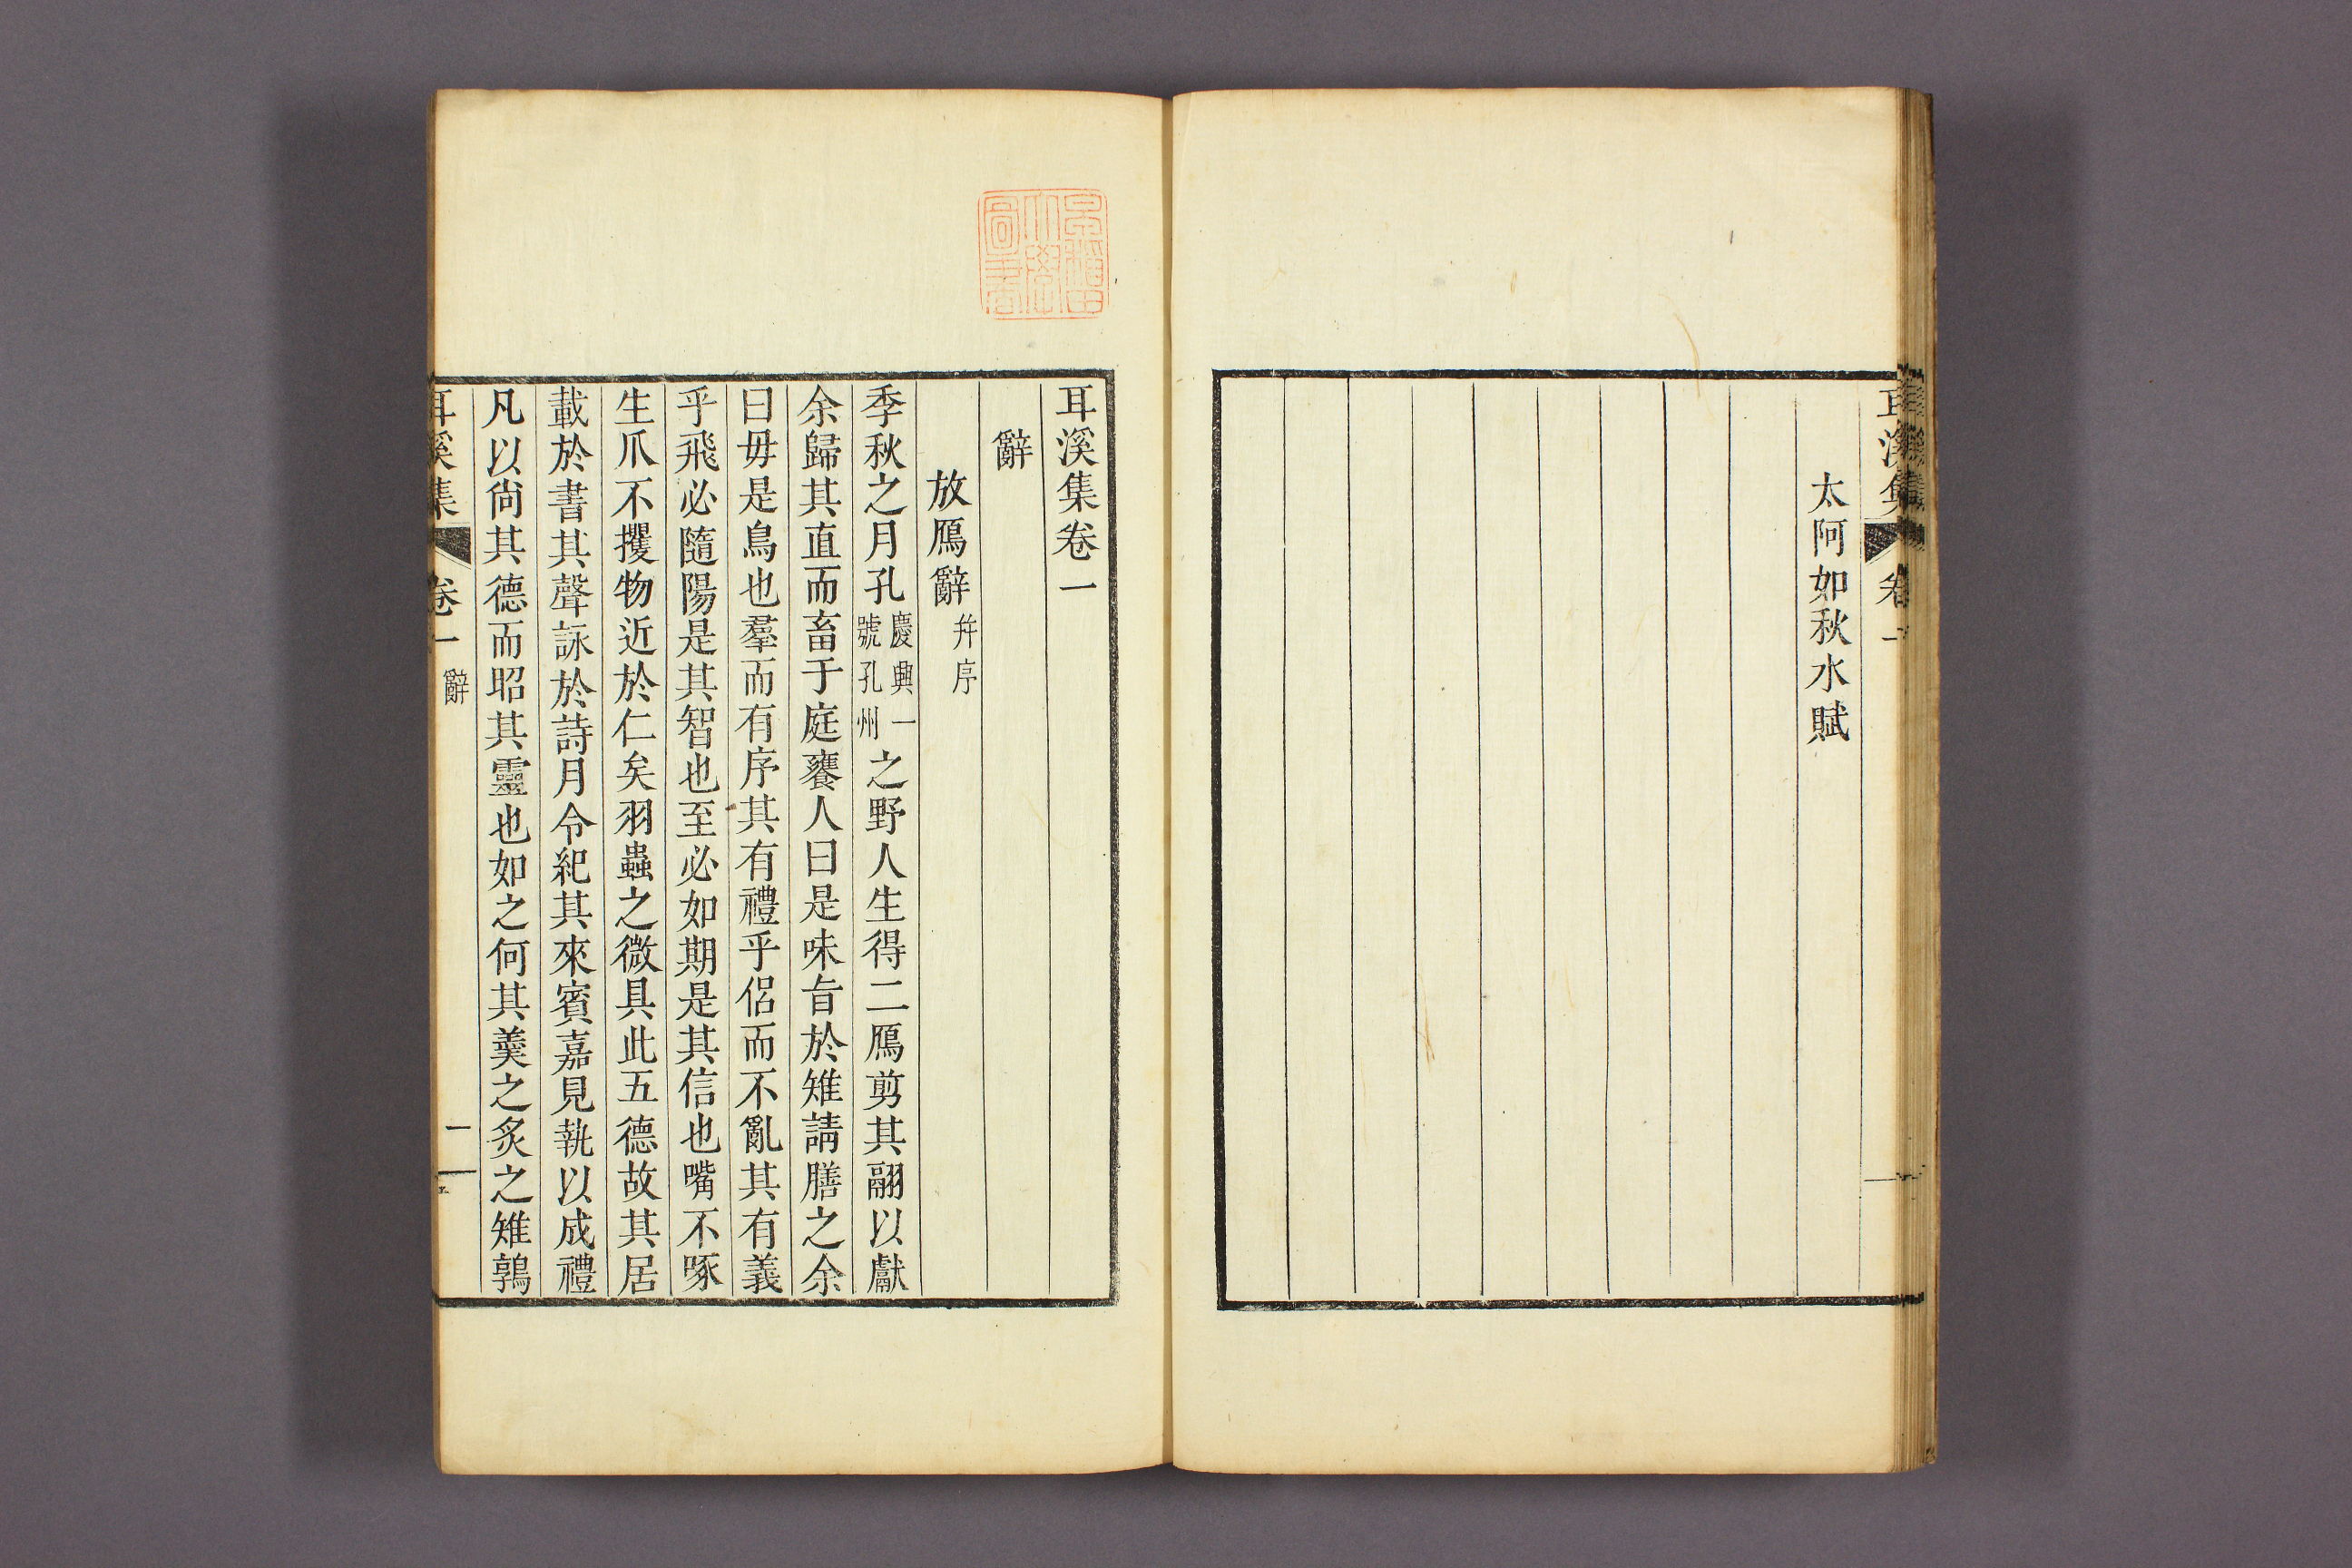 耳溪集 卷一
太阿如秋水賦
早稲田大學圖書
耳溪集卷一
辭
放鴈辭 幷序
季秋之月孔慶興一號孔州之野人生得二鴈剪其翮以獻
余歸其直而畜于庭饔人曰是味旨於雉請膳之余
曰毋是鳥也羣而有序其有禮乎侶而不亂其有義
乎飛必隨陽是其智也至必如期是其信也嘴不啄
生爪不攫物近於仁矣羽蟲之微具此五德故其居
載於書其聲詠於詩月令紀其來賓嘉見執以成禮
凡以尙其德而昭其靈也如之何其羹之炙之雉鶉
耳溪集 卷一 辭 一